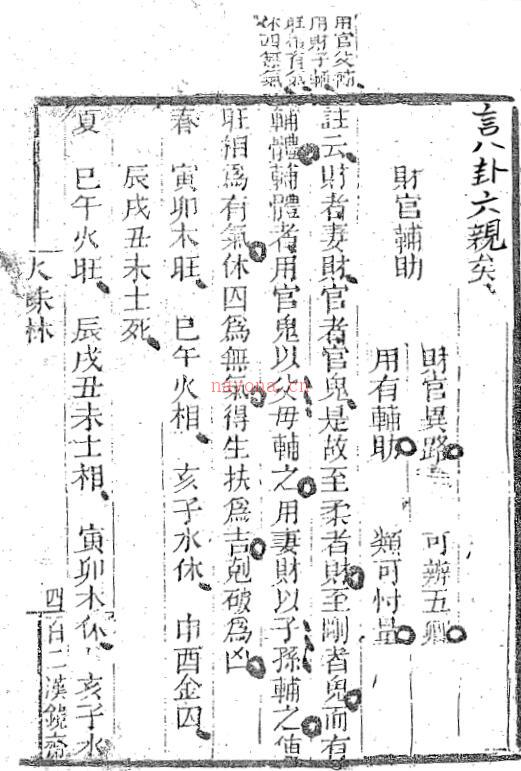 用官父母輔
用財子輔
旺相有氣
休囚無氣
言八卦六親矣
財官異路 可辨五鄉
財官輔助
用有輔助 類可忖量
註云財者妻財官者官鬼是故至柔者財至剛者鬼而有
輔體輔體者用官鬼以父母輔之用妻財以子孫輔之值
旺相為有氣休囚為無氣得生扶為吉剋破為凶
春 寅卯木旺 巳午火相 亥子水休 申酉金囚
辰戌丑未土死
夏 巳午火旺 辰戌丑未土相 寅卯木休 亥子水
火珠林
四百二漢鏡齋
nayona.cn